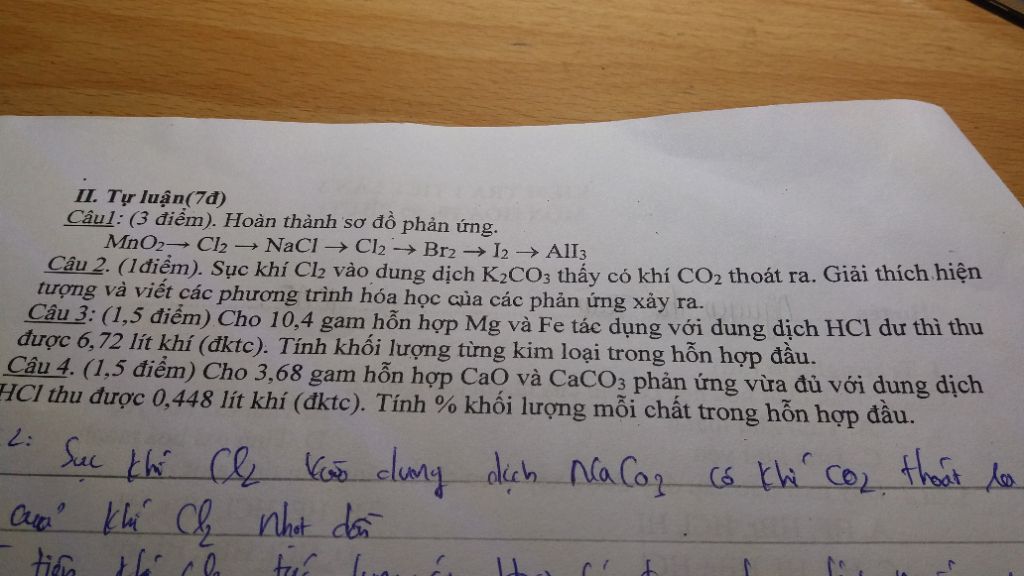 II. Tự luận(7đ)
Câu1: (3 điểm). Hoàn thành sơ đồ phản ứng.
MnO₂→ Cl₂ → NaCl → Cl₂ → Br₂ → I₂ → AlI₃
Câu 2. (1điểm). Sục khí Cl₂ vào dung dịch K₂CO₃ thấy có khí CO₂ thoát ra. Giải thích hiện
tượng và viết các phương trình hóa học của các phản ứng xảy ra.
Câu 3: (1,5 điểm) Cho 10,4 gam hỗn hợp Mg và Fe tác dụng với dung dịch HCl dư thì thu
được 6,72 lít khí (đktc). Tính khối lượng từng kim loại trong hỗn hợp đầu.
Câu 4. (1,5 điểm) Cho 3,68 gam hỗn hợp CaO và CaCO₃ phản ứng vừa đủ với dung dịch
HCl thu được 0,448 lít khí (đktc). Tính % khối lượng mỗi chất trong hỗn hợp đầu.
2: Sục khí Cl₂ vào dung dịch NaCO₃ có khí CO₂ thoát ra
khí Cl₂ nhạt dần